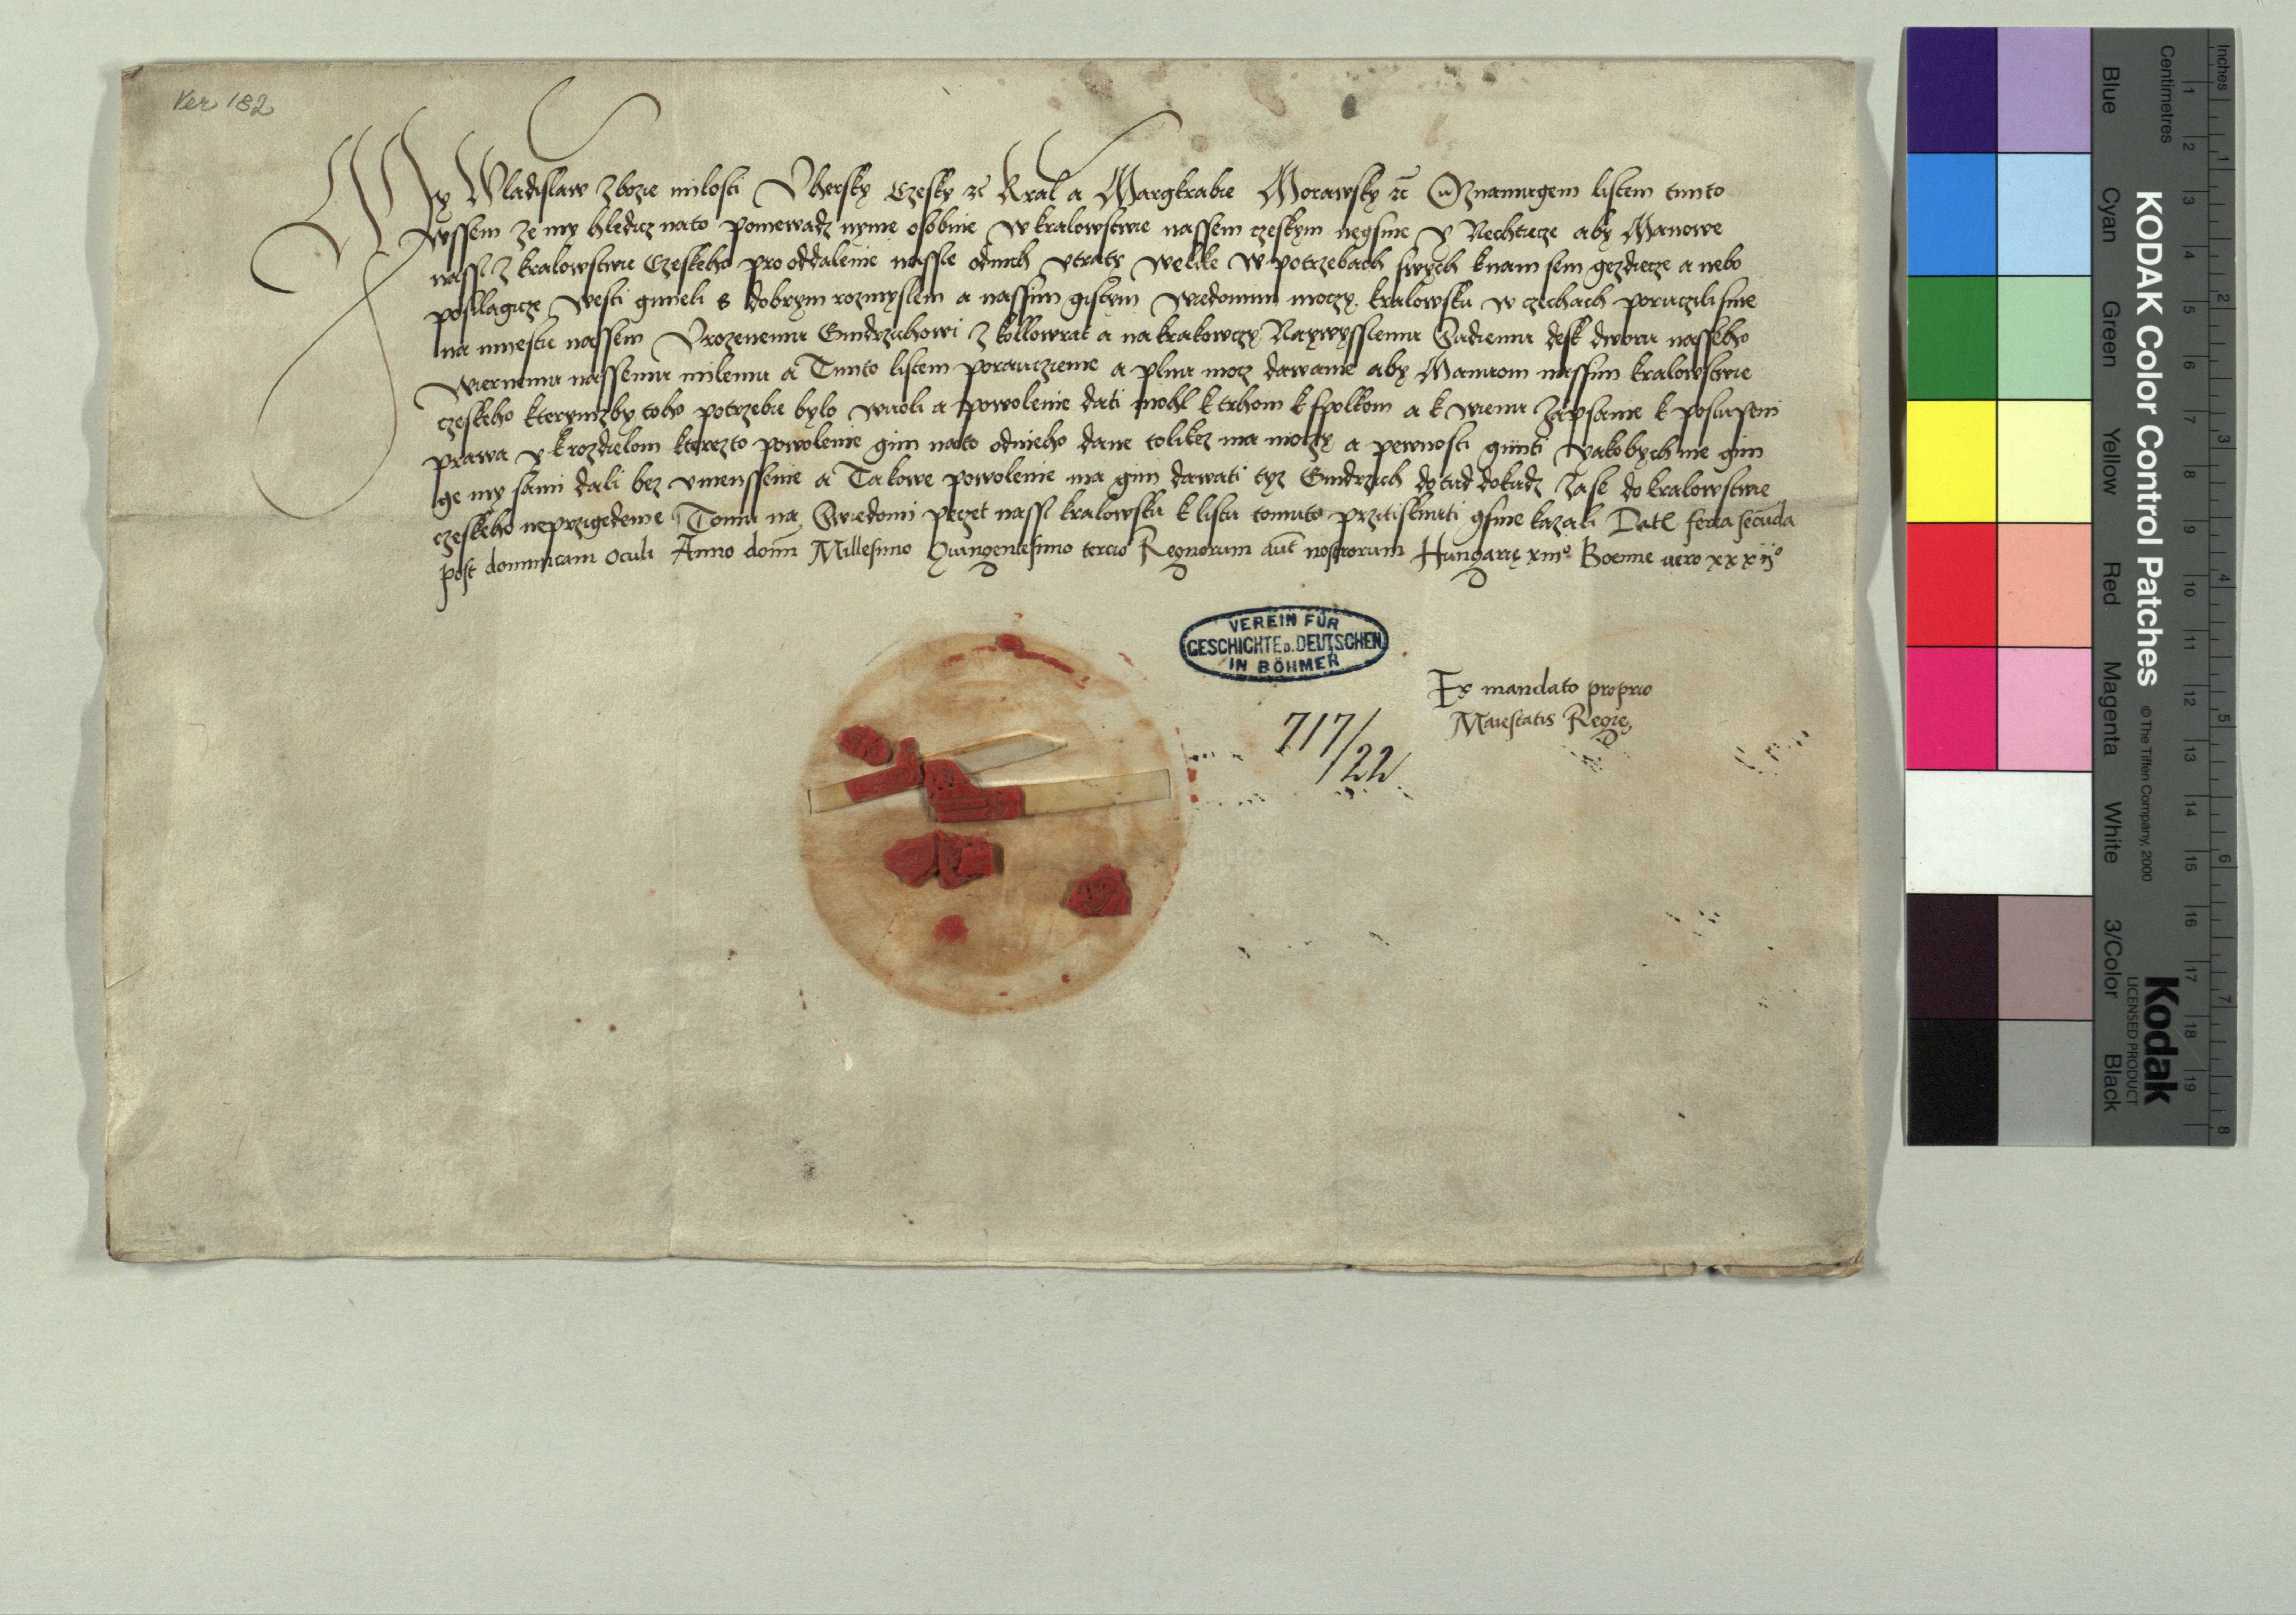 Ver 182
My Wladislaw z bozie milosti Vhersky Czesky &c Kral a Margkrabie Morawsky &c Oznamugem listem tiemto
wssem ze my hledicz nato poniewadz nynie osobnie w kralowstwie nassem czeskym negsme y Nechticze aby Manowe
nassi z kralowstwie Czeskeho pro oddalenie nassie odnich vtraty welike w potrzebach swych knam sem gezdiecze a nebo
posilagicze westi gmieli s dobrym rozmyslem a nassim gistym wiedomim moczy kralowsku w czechach poruczili sme
na miestie nassem Vrozenemu Gindrzichowi z kollowrat a na krakowczy Naywyssiemu Sudiemu desk dworu nasseho
wiernemu nassemu milemu a Tiemto listem porauczieme a plnu mocz dawame aby Manuom nassim kralowstwie
czeskeho kterymzby toho potrzebie bylo wuoli a powolenie dati mohl k trhom k spolkom a k wienu zapsanie k poslupeni
prawa y k rozdielom kterezto powolenie gim nato odnieho dane tolikez ma moczy a pewnosti gmiti yakobychme gim
ge my sami dali bez vmenssenie a Takowe powolenie ma gim dawati tyz Gindrzich dotud dokudz zase do kralowstwie
czeskeho neprzigedeme Tomu na Swiedomi peczet nassi kralowsku k listu tomuto przitisknuti gsme kazali Dat feria secunda
post dominicam Oculi Anno domini Millesimo Quingentesimo tercio Regnorum aut nostrorum Hungarie xiii° Boemie vero xxxii°
VEREIN FÜR
GESCHICHTE D. DEUTSCHEN
IN BÖHMEN
Ex mandato proprio
Maiestatis Regie
717/22
Inches
Centimetres
1 2 3 4 5 6 7 8 9 10 11 12 13 14 15 16 17 18 19
1 2 3 4 5 6 7 8
KODAK Color Control Patches © The Tiffen Company, 2000
Kodak
LICENSED PRODUCT
Blue Cyan Green Yellow Red Magenta White 3/Color Black